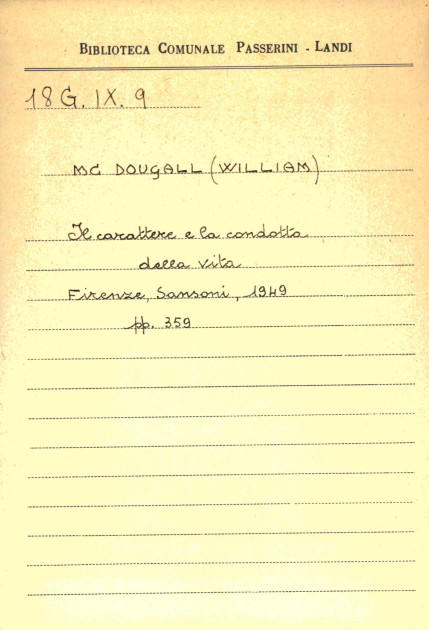 BIBLIOTECA COMUNALE PASSERINI - LANDI
18 G. IX. 9
MC DOUGALL (WILLIAM)
Il carattere e la condotta
della vita
Firenze, Sansoni, 1949
pp. 359